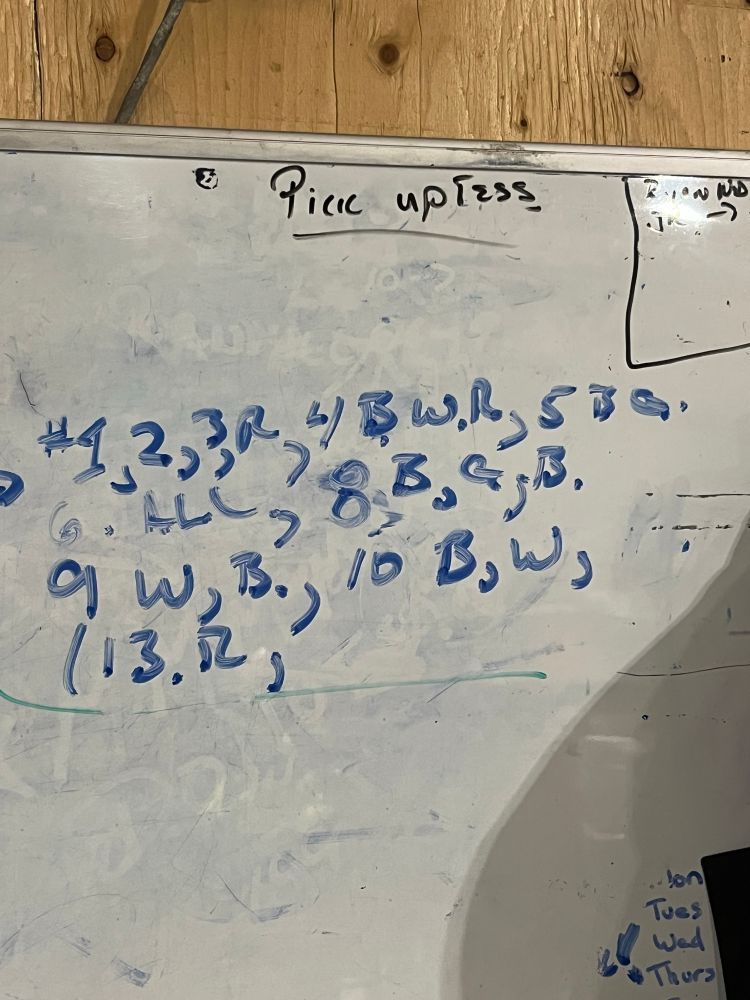 Pick up Tess
#1, 2, 3, R, 4 B.W.R, 5 B G.
6. ALL, 8, B, G, B.
9 W, B., 10 B, W,
(13. R,
Tues
Wed
Thurs